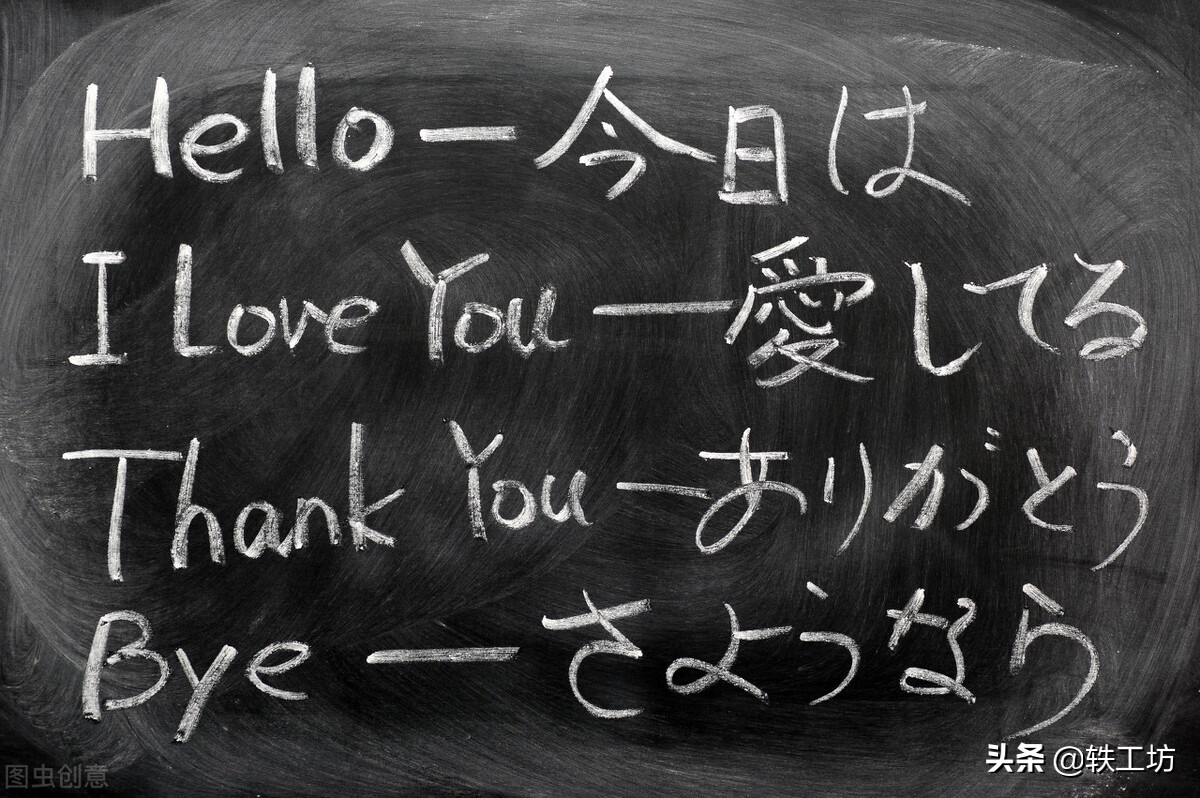 Hello — 今日は
I Love You — 愛してる
Thank You — ありがとう
Bye — さようなら
头条 @轶工坊
图虫创意